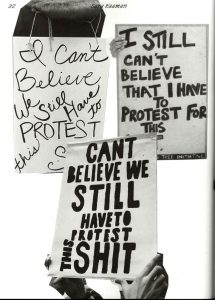 22
Sara Kaaman
I Can't
Believe
We Still Have
to
PROTEST
this
I STILL
CAN'T
BELIEVE
THAT I HAVE
TO
PROTEST FOR
THIS
CANT
BELIEVE WE
STILL
HAVE TO
PROTEST
THIS
SHIT